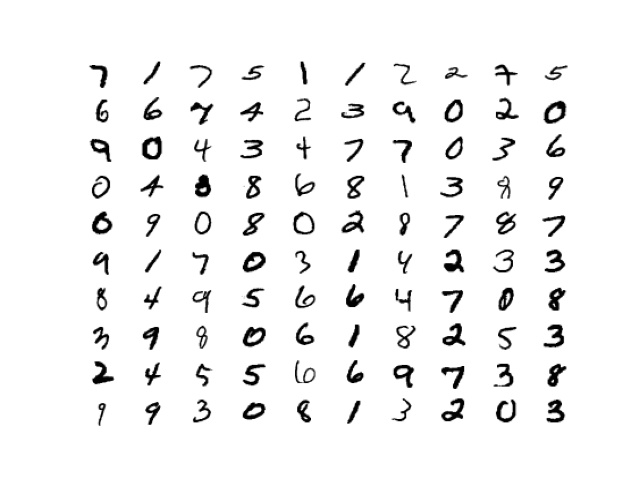 7 1 7 5 1 1 2 2 7 5
6 6 7 4 2 3 9 0 2 0
9 0 4 3 4 7 7 0 3 6
0 4 8 8 6 8 1 3 8 9
0 9 0 8 0 2 8 7 8 7
9 1 7 0 3 1 4 2 3 3
8 4 9 5 6 6 4 7 0 8
3 9 8 0 6 1 8 2 5 3
2 4 5 5 6 6 9 7 3 8
9 9 3 0 8 1 3 2 0 3